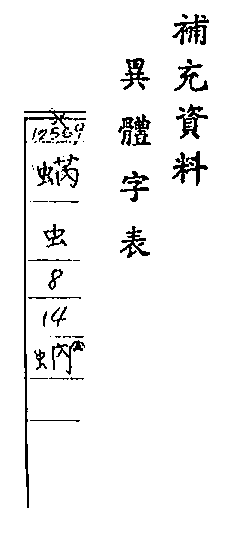 補充資料
異體字表
12569
蜹
虫
8
14
蚋